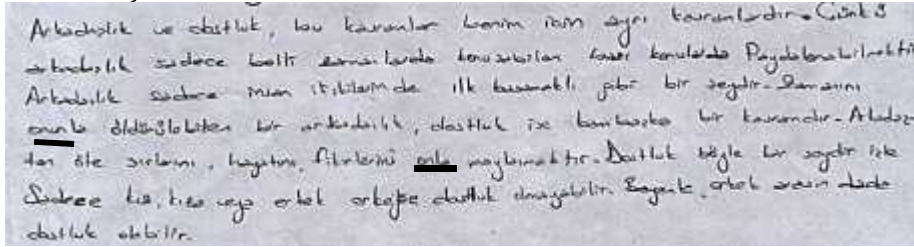 Arkadaşlık ve dostluk, bu kavramlar benim için ayrı kavramlardır. Çünkü
arkadaşlık sadece belli zamanlarda konuşabilen bazı konularda Paydalanabilmektir
Arkadaşlık sadece insan ilişkilerinde ilk basamaklı gibi bir şeydir. Zamanını
onunla öldürülebilen bir arkadaşlık, dostluk ise bambaşka bir kavramdır. Arkadaş-
tan öte sırlarını, hayatını, fikirlerini onla paylaşmaktır. Dostluk böyle bir şeydir işte
Sadece kız, kıza veya erkek erkeğe dostluk olmayabilir. Bayanla, erkek arasın dada
dostluk olabilir.